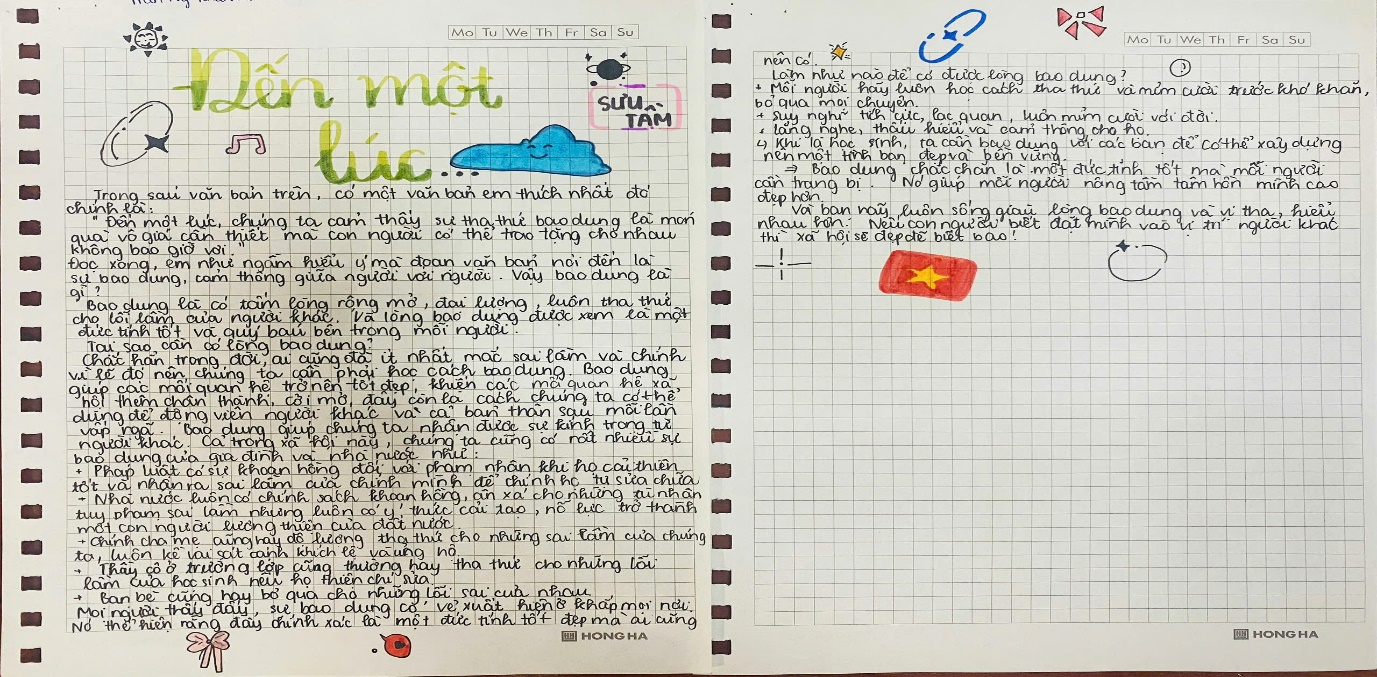 Mo Tu We Th Fr Sa Su
Đến một
lúc...
SƯU
TẦM
Trong sáu văn bản trên, có một văn bản em thích nhất đó
chính là:
"Đến một lúc, chúng ta cảm thấy sự tha thứ bao dung là món
quà vô giá cần thiết mà con người có thể trao tặng cho nhau
không bao giờ vơi"
Đọc xong, em như ngẫm hiểu ý mà đoạn văn bản nói đến là
sự bao dung, cảm thông giữa người với người. Vậy bao dung là
gì?
Bao dung là có tấm lòng rộng mở, đại lượng, luôn tha thứ
cho lỗi lầm của người khác. Và lòng bao dung được xem là một
đức tính tốt và quý báu bên trong mỗi người.
Tại sao cần có lòng bao dung?
Chắc hẳn trong đời, ai cũng đã ít nhất mắc sai lầm và chính
vì lẽ đó nên chúng ta cần phải học cách bao dung. Bao dung
giúp các mối quan hệ trở nên tốt đẹp, khiến các mối quan hệ xã
hội thêm chân thành, cởi mở, đây còn là cách chúng ta có thể
dùng để động viên người khác và cả bản thân sau mỗi lần
vấp ngã. Bao dung giúp chúng ta nhận được sự kính trọng từ
người khác. Cả trong xã hội này, chúng ta cũng có rất nhiều sự
bao dung của gia đình và nhà nước như:
+ Pháp luật có sự khoan hồng đối với phạm nhân khi họ cải thiện
tốt và nhận ra sai lầm của chính mình để chính họ tự sửa chữa
+ Nhà nước luôn có chính sách khoan hồng, ân xá cho những tù nhân
tuy phạm sai lầm nhưng luôn có ý thức cải tạo, nỗ lực trở thành
một con người lương thiện của đất nước.
+ Chính cha mẹ cũng hay độ lượng tha thứ cho những sai lầm của chúng
ta, luôn kề vai sát cánh khích lệ và ủng hộ
+ Thầy cô ở trường lớp cũng thường hay tha thứ cho những lỗi
lầm của học sinh nếu họ thiện chí sửa
+ Bạn bè cũng hay bỏ qua cho những lỗi sai của nhau
Mọi người thấy đấy, sự bao dung có vẻ xuất hiện ở khắp mọi nơi.
Nó thể hiện rằng đây chính xác là một đức tính tốt đẹp mà ai cũng
HONG HA
Mo Tu We Th Fr Sa Su
nên có.
Làm như nào để có được lòng bao dung?
+ Mỗi người hãy luôn học cách tha thứ và mỉm cười trước khó khăn,
bỏ qua mọi chuyện.
+ Suy nghĩ tích cực, lạc quan, luôn mỉm cười với đời.
+ lắng nghe, thấu hiểu và cảm thông cho họ.
↳ Khi là học sinh, ta cần bao dung với các bạn để có thể xây dựng
nên một tình bạn đẹp và bền vững.
⇒ Bao dung chắc chắn là một đức tính tốt mà mỗi người
cần trang bị. Nó giúp mỗi người nâng tầm tâm hồn mình cao
đẹp hơn.
Và bạn hãy luôn sống giàu lòng bao dung và vị tha, hiểu
nhau hơn. Nếu con người biết đặt mình vào vị trí người khác
thì xã hội sẽ đẹp đẽ biết bao!
HONG HA